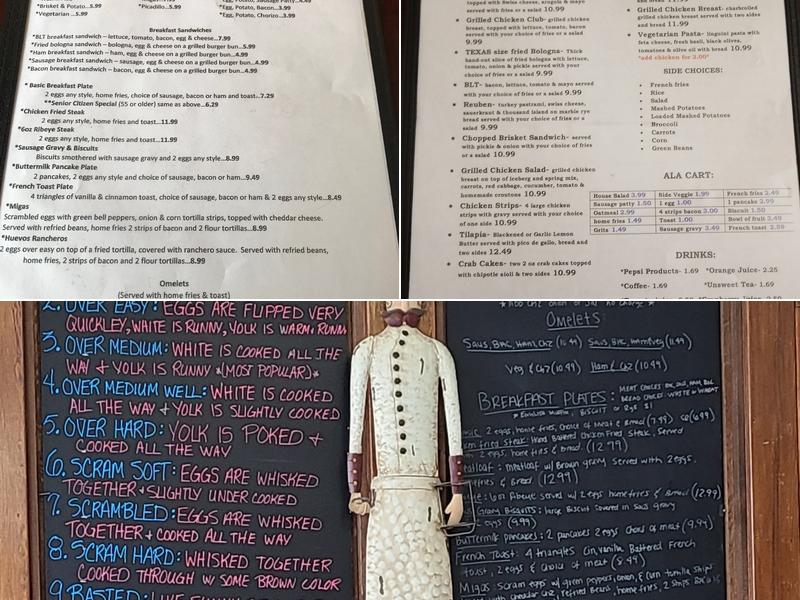 *Brisket & Potato...5.99
*Vegetarian ...5.99
*Picadillo...5.99
*Egg, Potato, Bacon...3.99
*Egg, Potato, Chorizo...3.99
Breakfast Sandwiches
*BLT breakfast sandwich – lettuce, tomato, bacon, egg & cheese...7.99
*Fried bologna sandwich – bologna, egg & cheese on a grilled burger bun...5.99
*Ham breakfast sandwich – ham, egg & cheese on a grilled burger bun...4.99
*Sausage breakfast sandwich – sausage, egg & cheese on a grilled burger bun...5.99
*Bacon breakfast sandwich – bacon, egg & cheese on a grilled burger bun...4.99
* Basic Breakfast Plate
2 eggs any style, home fries, choice of sausage, bacon or ham and toast...7.29
**Senior Citizen Special (55 or older) same as above...6.29
*Chicken Fried Steak
2 eggs any style, home fries and toast...11.99
*6oz Ribeye Steak
2 eggs any style, home fries and toast...11.99
*Sausage Gravy & Biscuits
Biscuits smothered with sausage gravy and 2 eggs any style...8.99
*Buttermilk Pancake Plate
2 pancakes, 2 eggs any style and choice of sausage, bacon or ham...9.49
*French Toast Plate
4 triangles of vanilla & cinnamon toast, choice of sausage, bacon or ham & 2 eggs any style...8.49
*Migas
Scrambled eggs with green bell peppers, onion & corn tortilla strips, topped with cheddar cheese.
Served with refried beans, home fries 2 strips of bacon and 2 flour tortillas...8.99
*Huevos Rancheros
2 eggs over easy on top of a fried tortilla, covered with ranchero sauce. Served with refried beans,
home fries, 2 strips of bacon and 2 flour tortillas...8.99
Omelets
(Served with home fries & toast)
topped with Swiss cheese, arugula & mayo
served with fries or a salad 10.99
Grilled Chicken Club- grilled chicken
breast, topped with lettuce, tomato, bacon
served with your choice of fries or a salad
9.99
TEXAS size fried Bologna- Thick
hand-cut slice of fried bologna with lettuce,
tomato, onion & pickle served with your
choice of fries or a salad 9.99
BLT- bacon, lettuce, tomato & mayo served
with your choice of fries or a salad 9.99
Reuben- turkey pastrami, swiss cheese,
sauerkraut & thousand island on marble rye
bread served with your choice of fries or a
salad 9.99
Chopped Brisket Sandwich- served
with pickle & onion with your choice of fries
or a salad 10.99
Grilled Chicken Salad- grilled chicken
breast on top of iceberg and spring mix,
carrots, red cabbage, cucumber, tomato &
homemade croutons 10.99
Chicken Strips- 4 large chicken
strips with gravy served with your choice
of one side 10.99
Tilapia- Blackened or Garlic Lemon
Butter served with pico de gallo, bread and
two sides 12.49
Crab Cakes- two 2 oz crab cakes topped
with chipotle aioli & two sides 10.99
Grilled Chicken Breast- charbroiled
grilled chicken breast served with two sides
and bread 11.99
Vegetarian Pasta- linguini pasta with
feta cheese, fresh basil, black olives,
tomatoes & olive oil with bread 10.99
*add chicken for 3.00*
SIDE CHOICES:
French fries
Rice
Salad
Mashed Potatoes
Loaded Mashed Potatoes
Broccoli
Carrots
Corn
Green Beans
ALA CART:
House Salad 3.99 Side Veggie 1.99 French fries 2.49
Sausage patty 1.50 1 egg 1.00 1 pancake 2.99
Oatmeal 2.99 4 strips bacon 3.00 Biscuit 1.50
home fries 1.49 Toast 1.00 Bowl of fruit 3.49
Grits 1.49 Sausage gravy 3.49 French toast 2.99
DRINKS:
*Pepsi Products- 1.69 *Orange Juice- 2.25
*Coffee- 1.69 *Unsweet Tea- 1.69
2. OVER EASY: EGGS ARE FLIPPED VERY
QUICKLEY, WHITE IS RUNNY, YOLK IS WARM + RUNNY
3. OVER MEDIUM: WHITE IS COOKED ALL THE
WAY + YOLK IS RUNNY *(MOST POPULAR)*
4. OVER MEDIUM WELL: WHITE IS COOKED
ALL THE WAY + YOLK IS SLIGHTLY COOKED
5. OVER HARD: YOLK IS POKED +
COOKED ALL THE WAY
6. SCRAM SOFT: EGGS ARE WHISKED
TOGETHER + SLIGHTLY UNDER COOKED
7. SCRAMBLED: EGGS ARE WHISKED
TOGETHER + COOKED ALL THE WAY
8. SCRAM HARD: WHISKED TOGETHER
COOKED THROUGH W/ SOME BROWN COLOR
9. BASTED:
Omelets
Saus, Bac, Ham, Chz Saus, Bac, Ham/veg (11.49)
Veg & Chz (10.49) Ham & Chz (10.49)
BREAKFAST PLATES:
2 eggs, home fries, choice of Meat & Bread (7.99)
Fried Steak: Hand Battered Chicken Fried Steak, Served
eggs, home fries & bread. (12.79)
meatloaf w/ Brown gravy served with 2 eggs,
Bread (12.99)
served w/ 2 eggs home fries & Bread (12.99)
Gravy Biscuits: large Biscuit covered in Saus gravy
eggs (9.99)
Buttermilk Pancakes: 2 pancakes 2 eggs choice of meat (9.99)
French Toast: 4 triangles Cin Vanilla Battered French
Toast, 2 eggs & choice of meat (8.49)
Migas: Scram eggs w/ green peppers, onion, & Corn tortilla Strips